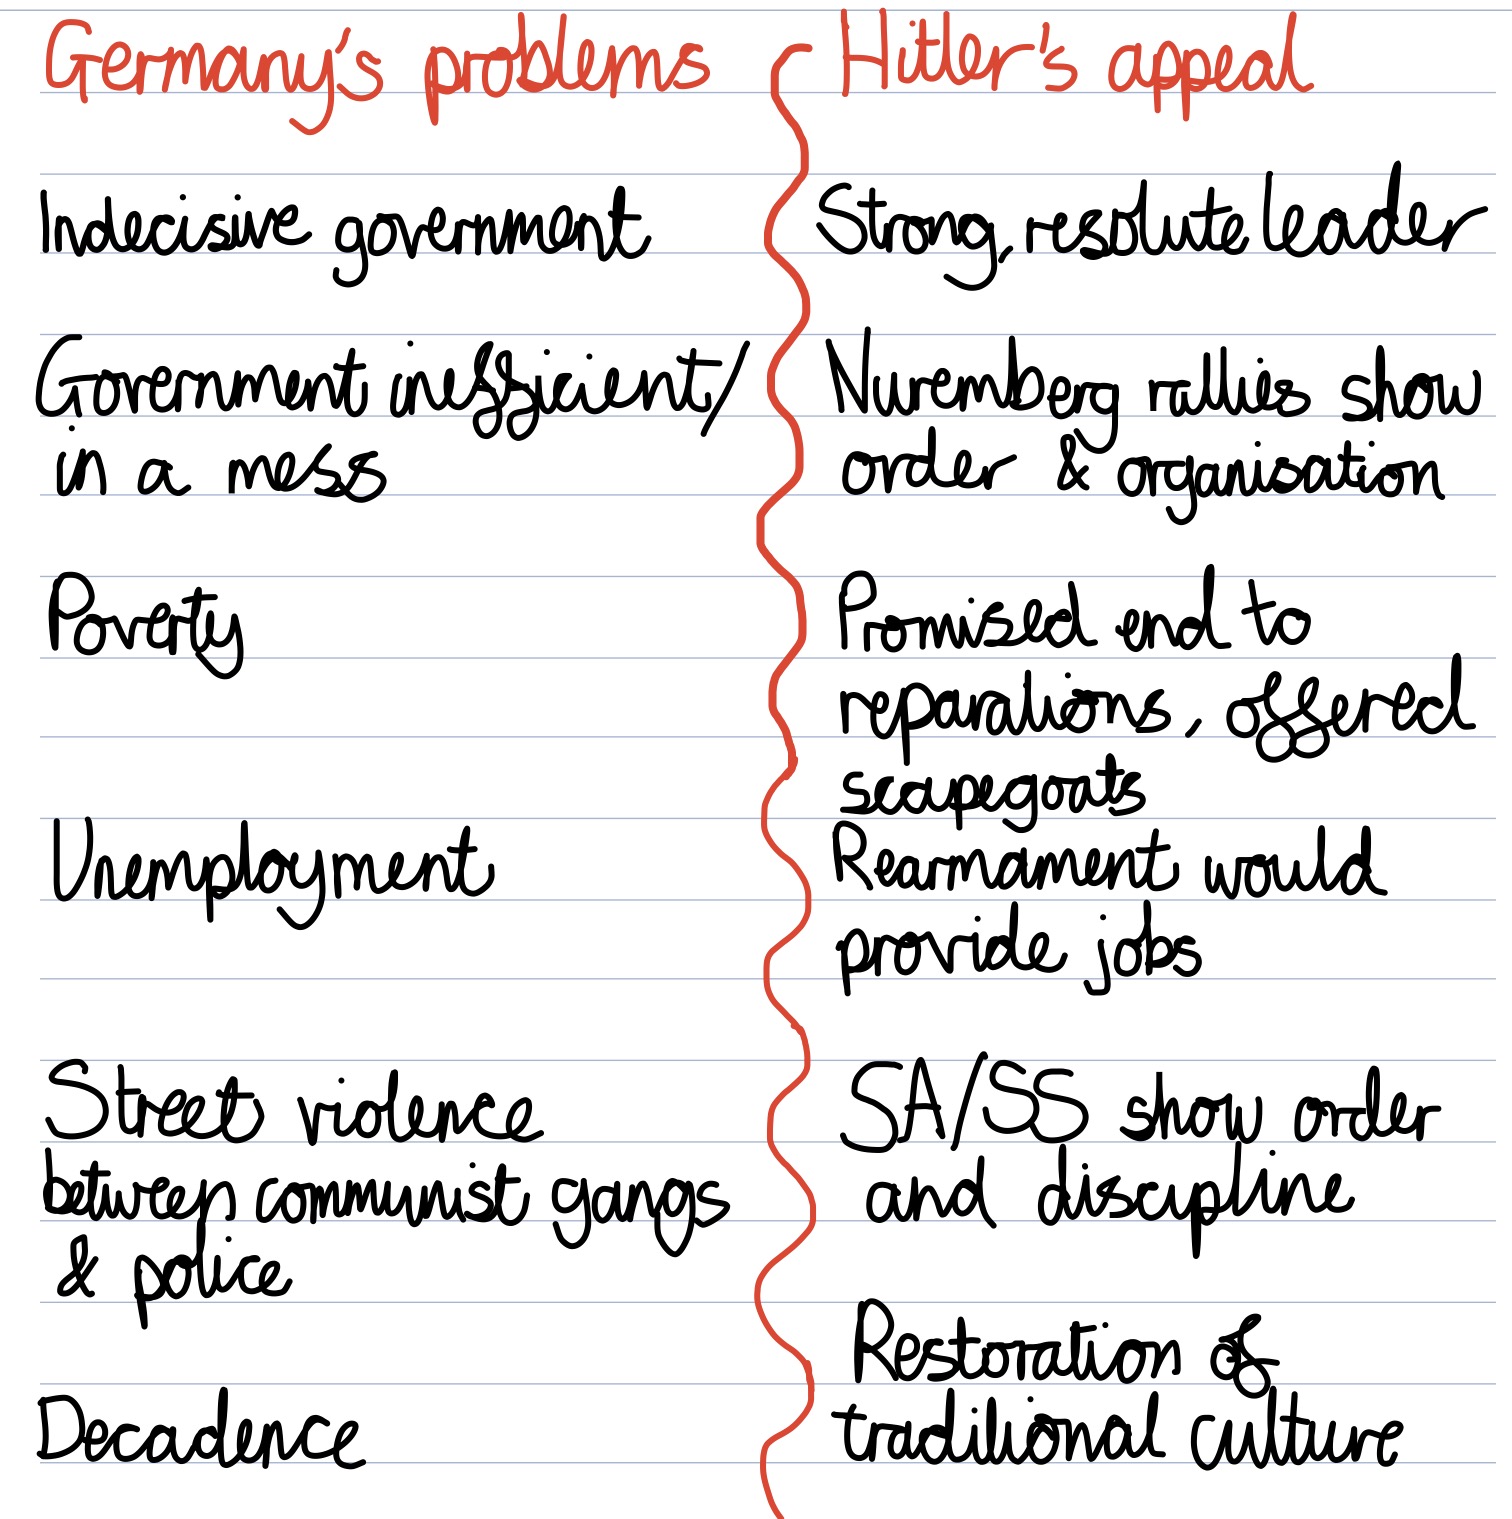 Germany's problems
Hitler's appeal
Indecisive government
Strong, resolute leader
Government inefficient/
in a mess
Nuremberg rallies show
order & organisation
Poverty
Promised end to
reparations, offered
scapegoats
Unemployment
Rearmament would
provide jobs
Street violence
between communist gangs
& police
SA/SS show order
and discipline
Decadence
Restoration of
traditional culture